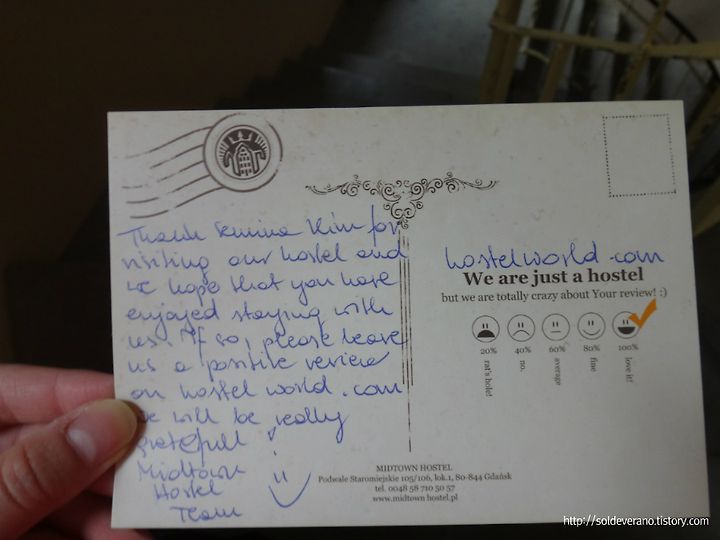 Thank Semina Kim for
visiting our hostel and
we hope that you have
enjoyed staying with
us. If so, please leave
us a positive review
on hostel world.com
we will be really
gratefull!
Midtown
Hostel
Team
hostelworld.com
We are just a hostel
but we are totally crazy about Your review! :)
20% 40% 60% 80% 100%
rat's hole! no. average fine love it!
MIDTOWN HOSTEL
Podwale Staromiejskie 105/106, lok.1, 80-844 Gdańsk
tel. 0048 58 710 50 57
www.midtown hostel.pl
http://soldeverano.tistory.com